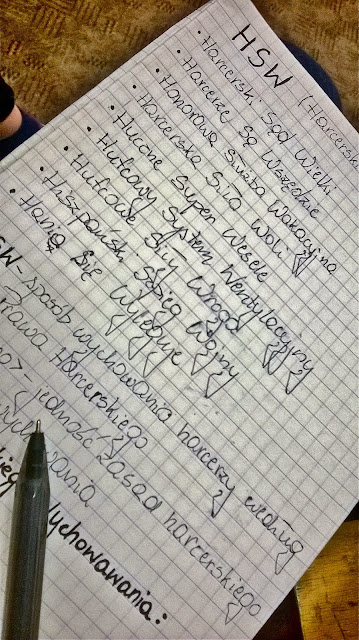 HSW (Harcerski
• Harcerski Sąd Wielki
• Harcerze Są Wszędzie
• Honorowa Służba Wakacyjna
• Harcerska Siła Woli
• Huczne Sypen Wesele
• Hufcowy System Wentylacyjny
• Hufcowe Wrogo
• Hiszpański Szpieg Wojny
• Hania Się Wygłupie
SW - sposób wychowania harcerzy według
Prawa Harcerskiego
jedność zasad harcerskiego
wychowania
wychowawania: